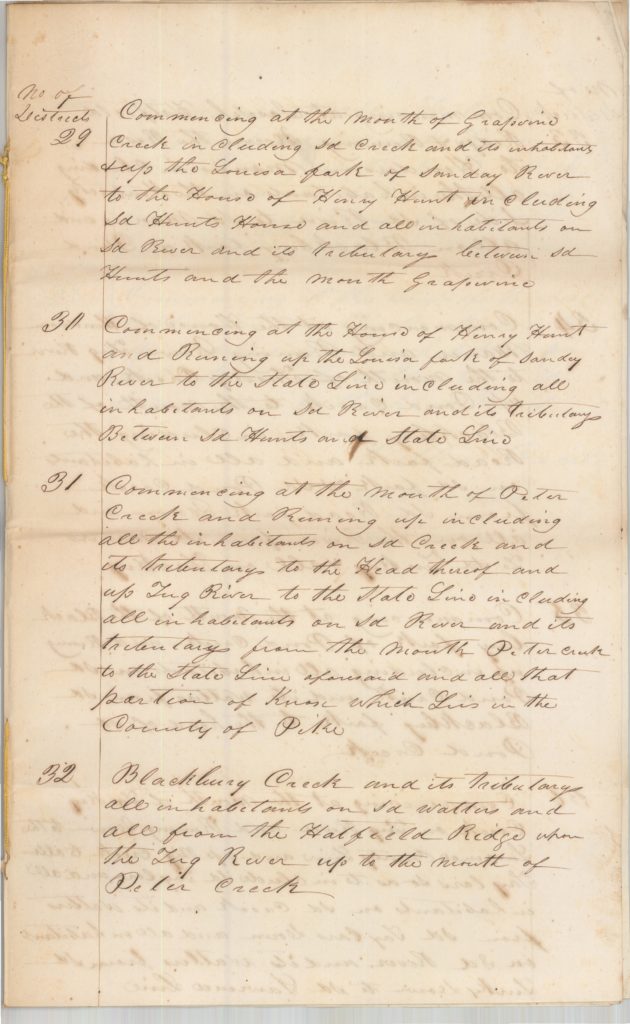 No of
Districts
29 Commencing at the Mouth of Grapvine
Creek in cluding sd Creek and its inhabitans
& up the Louisa fork of Sanday River
to the House of Henry Hunt in cluding
sd Hunts House and all in habitants on
sd River and its tributarys between sd
Hunts and the Mouth Grapevine
30 Commencing at the House of Henry Hunt
and Runing up the Louisa fork of Sanday
River to the State Line in cluding all
in habitants on sd River and its tributarys
Between sd Hunts and State Line
31 Commencing at the Mouth of Peter
Creek and Runing up in cluding
all the in habitants on sd Creek and
its tributarys to the Head thereof and
up Tug River to the State Line in cluding
all in habitants on sd River and its
tributarys from the Mouth Peter creek
to the State Line aforesaid and all that
partion of Knox which Lies in the
County of Pike
32 Blackbury Creek and its tributarys
all in habitants on sd watters and
all from the Hatfield Ridge upon
the Tug River up to the mouth of
Peter Creek